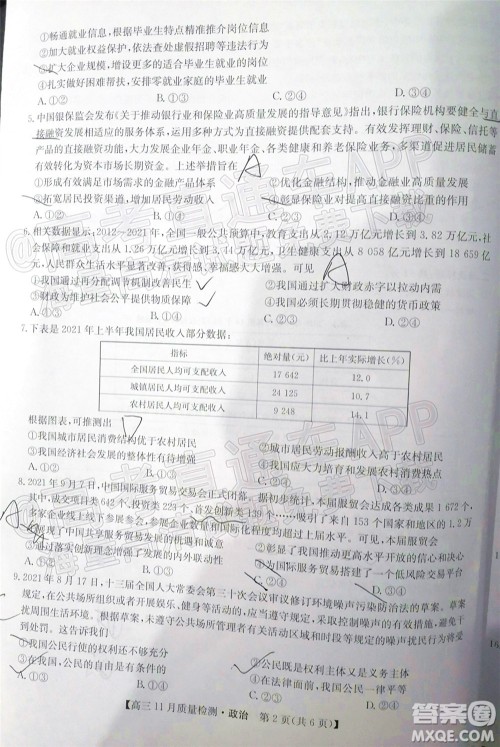 ①畅通就业信息，根据毕业生特点精准推介岗位信息
②加大就业权益保护，依法查处虚假招聘等违法行为
③实施扩岗增容，增设更多适合毕业生的高质量就业岗位
④扎实做好困难帮扶，安排零就业家庭毕业生就业
A.①② B.①③ C.②④ D.③④
5.中国银保监会发布《关于推动银行业和保险业高质量发展的指导意见》指出，银行保险机构要健全与直
接融资发展相适应的服务体系，运用多种方式为直接融资提供配套支持。有效发挥理财、保险、信托等
产品的直接融资功能，大力发展企业年金、职业年金、各类健康和养老保险业务，多渠道促进居民储蓄
有效转化为资本市场长期资金。上述举措旨在
①形成有效满足市场需求的金融产品体系 ②优化金融结构，推动金融业高质量发展
③拓宽居民投资渠道，增加居民劳动收入 ④彰显保险业均衡性和互助性的特点
A.①② B.①③ C.②④ D.③④
6.相关数据显示，2012～2021年，一般公共预算中，教育支出从2.12万亿元增长到3.82万亿元，社会
保障和就业支出从1.26万亿元增长到3.44万亿元，卫生健康支出从8 058亿元增长到18 659亿
元，人民群众生活水平显著改善，获得感、幸福感大大增强。可见
①我国通过再分配调节机制改善民生 ②我国通过扩大财政赤字以拉动内需
③财政为维持社会公平提供物质保障 ④我国彰显必须贯彻稳健的货币政策
A.①③ B.①④ C.②③ D.②④
7.下表是2021年上半年我国居民收入部分数据：
指标 绝对量(元) 比上年实际增长(%)
全国居民人均可支配收入 17 642 12.0
城镇居民人均可支配收入 24 125 10.7
农村居民人均可支配收入 9 248 14.1
根据图表，可推测出 D
①我国城市居民消费结构优于农村居民 ②城市居民劳动报酬收入高于农村居民
③我国经济社会发展的整体态势良好
A.①② B.①④ C.②③ D.③④
8.2021年9月7日，中国国际服务贸易交易会正式闭幕。据初步统计，本届服贸会共达成各类成果1 672个，
其中，成交项目类642个、投资类223个、首发创新类139个……吸引了来自153个国家和地区的1.2万
多家企业线上线下参展参会，参展企业数量和国际化程度均超过上届。可见，本届服贸会
①展现了中国与合作共赢的担当
③通过落实创新理念增强了发展的内外联动性
A.①② B.①③ C.②④ D.③④
9.2021年8月17日，十三届全国人大常委会第三十次会议审议修订环境噪声污染防治法的草案。草案
规定，在公共场所组织或者开展娱乐、健身等活动，应当采取有效措施，控制噪声的产生，防止干
扰周围生活环境。草案还规定，未遵守公共场所管理者有关活动区域、时段等规定的噪声扰民行为将受
到处罚。这表明
①公民行使的权利还不够真实 ②公民既是权利主体又是义务主体
③在我国，公民的自由是有法可依的 ④在法律面前，公民行使权利一律平等
A.①② B.①④ C.②③ D.③④
【高三11月质量检测·政治 第2页(共6页)】
答案圈
MXQE.COM